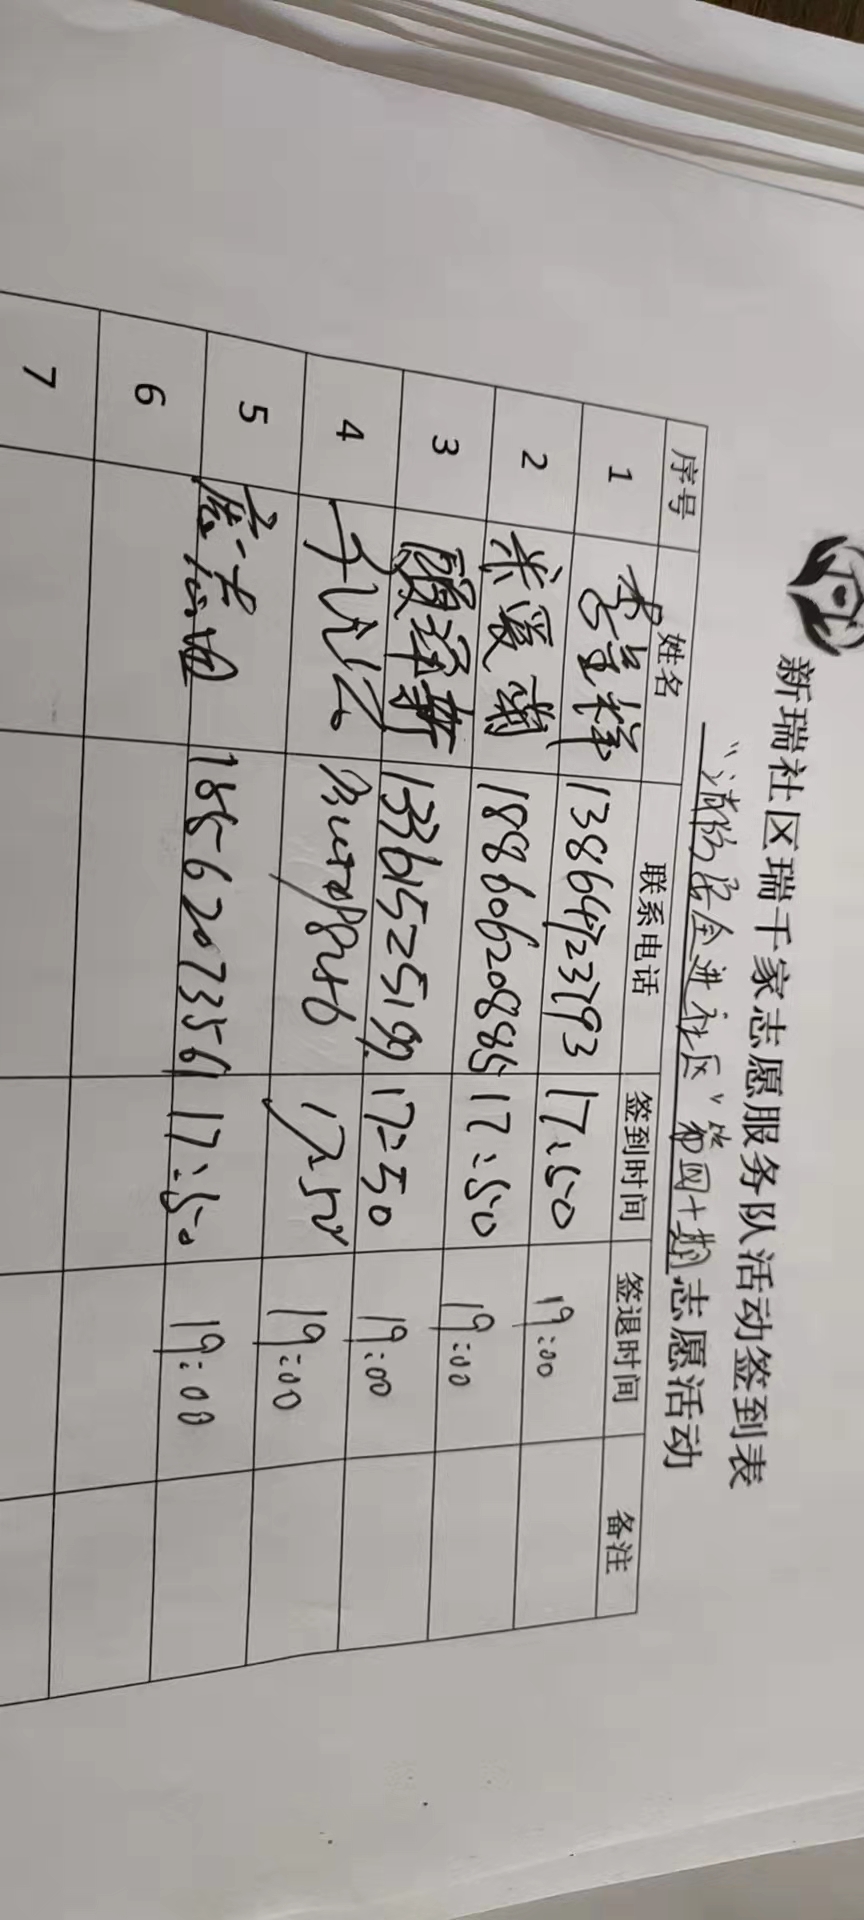 新瑞社区瑞千家志愿服务队活动签到表
"消防安全进社区"第四十期志愿活动
序号 姓名 联系电话 签到时间 签退时间 备注
1 李宝祥 13864723793 17:50 19:00
2 米爱菊 18860620885 17:50 19:00
3 顾泽新 13361525199 17:50 19:00
4 17:50 19:00
5 18562073561 17:50 19:00
6
7